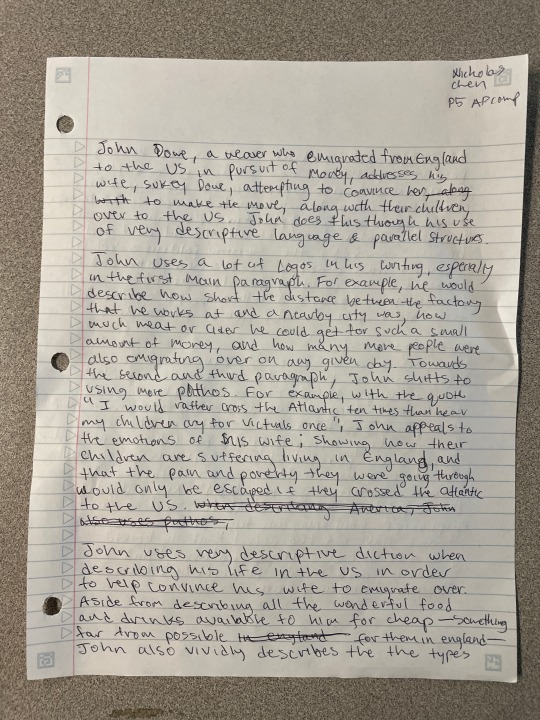 Nicholas
Chen
P5 AP comp
John Dowe, a weaver who emigrated from England
to the US in pursuit of money, addresses his
wife, Sukey Dowe, attempting to convince her, along
with to make the move, along with their children,
over to the US. John does this through his use
of very descriptive language & parallel structures.
John uses a lot of Logos in his writing, especially
in the first main paragraph. For example, he would
describe how short the distance between the factory
that he works at and a nearby city was, how
much meat or cider he could get for such a small
amount of money, and how many more people were
also emigrating over on any given day. Towards
the second and third paragraph, John shifts to
using more pathos. For example, with the quote
"I would rather cross the Atlantic ten times than hear
my children cry for victuals once", John appeals to
the emotions of his wife; showing how their
children are suffering living in England, and
that the pain and poverty they were going through
would only be escaped if they crossed the atlantic
to the US. when describing America, John
also uses pathos,
John uses very descriptive diction when
describing his life in the US in order
to help convince his wife to emigrate over.
Aside from describing all the wonderful food
and drinks available to him for cheap — something
far from possible in england for them in england —
John also vividly describes the the types